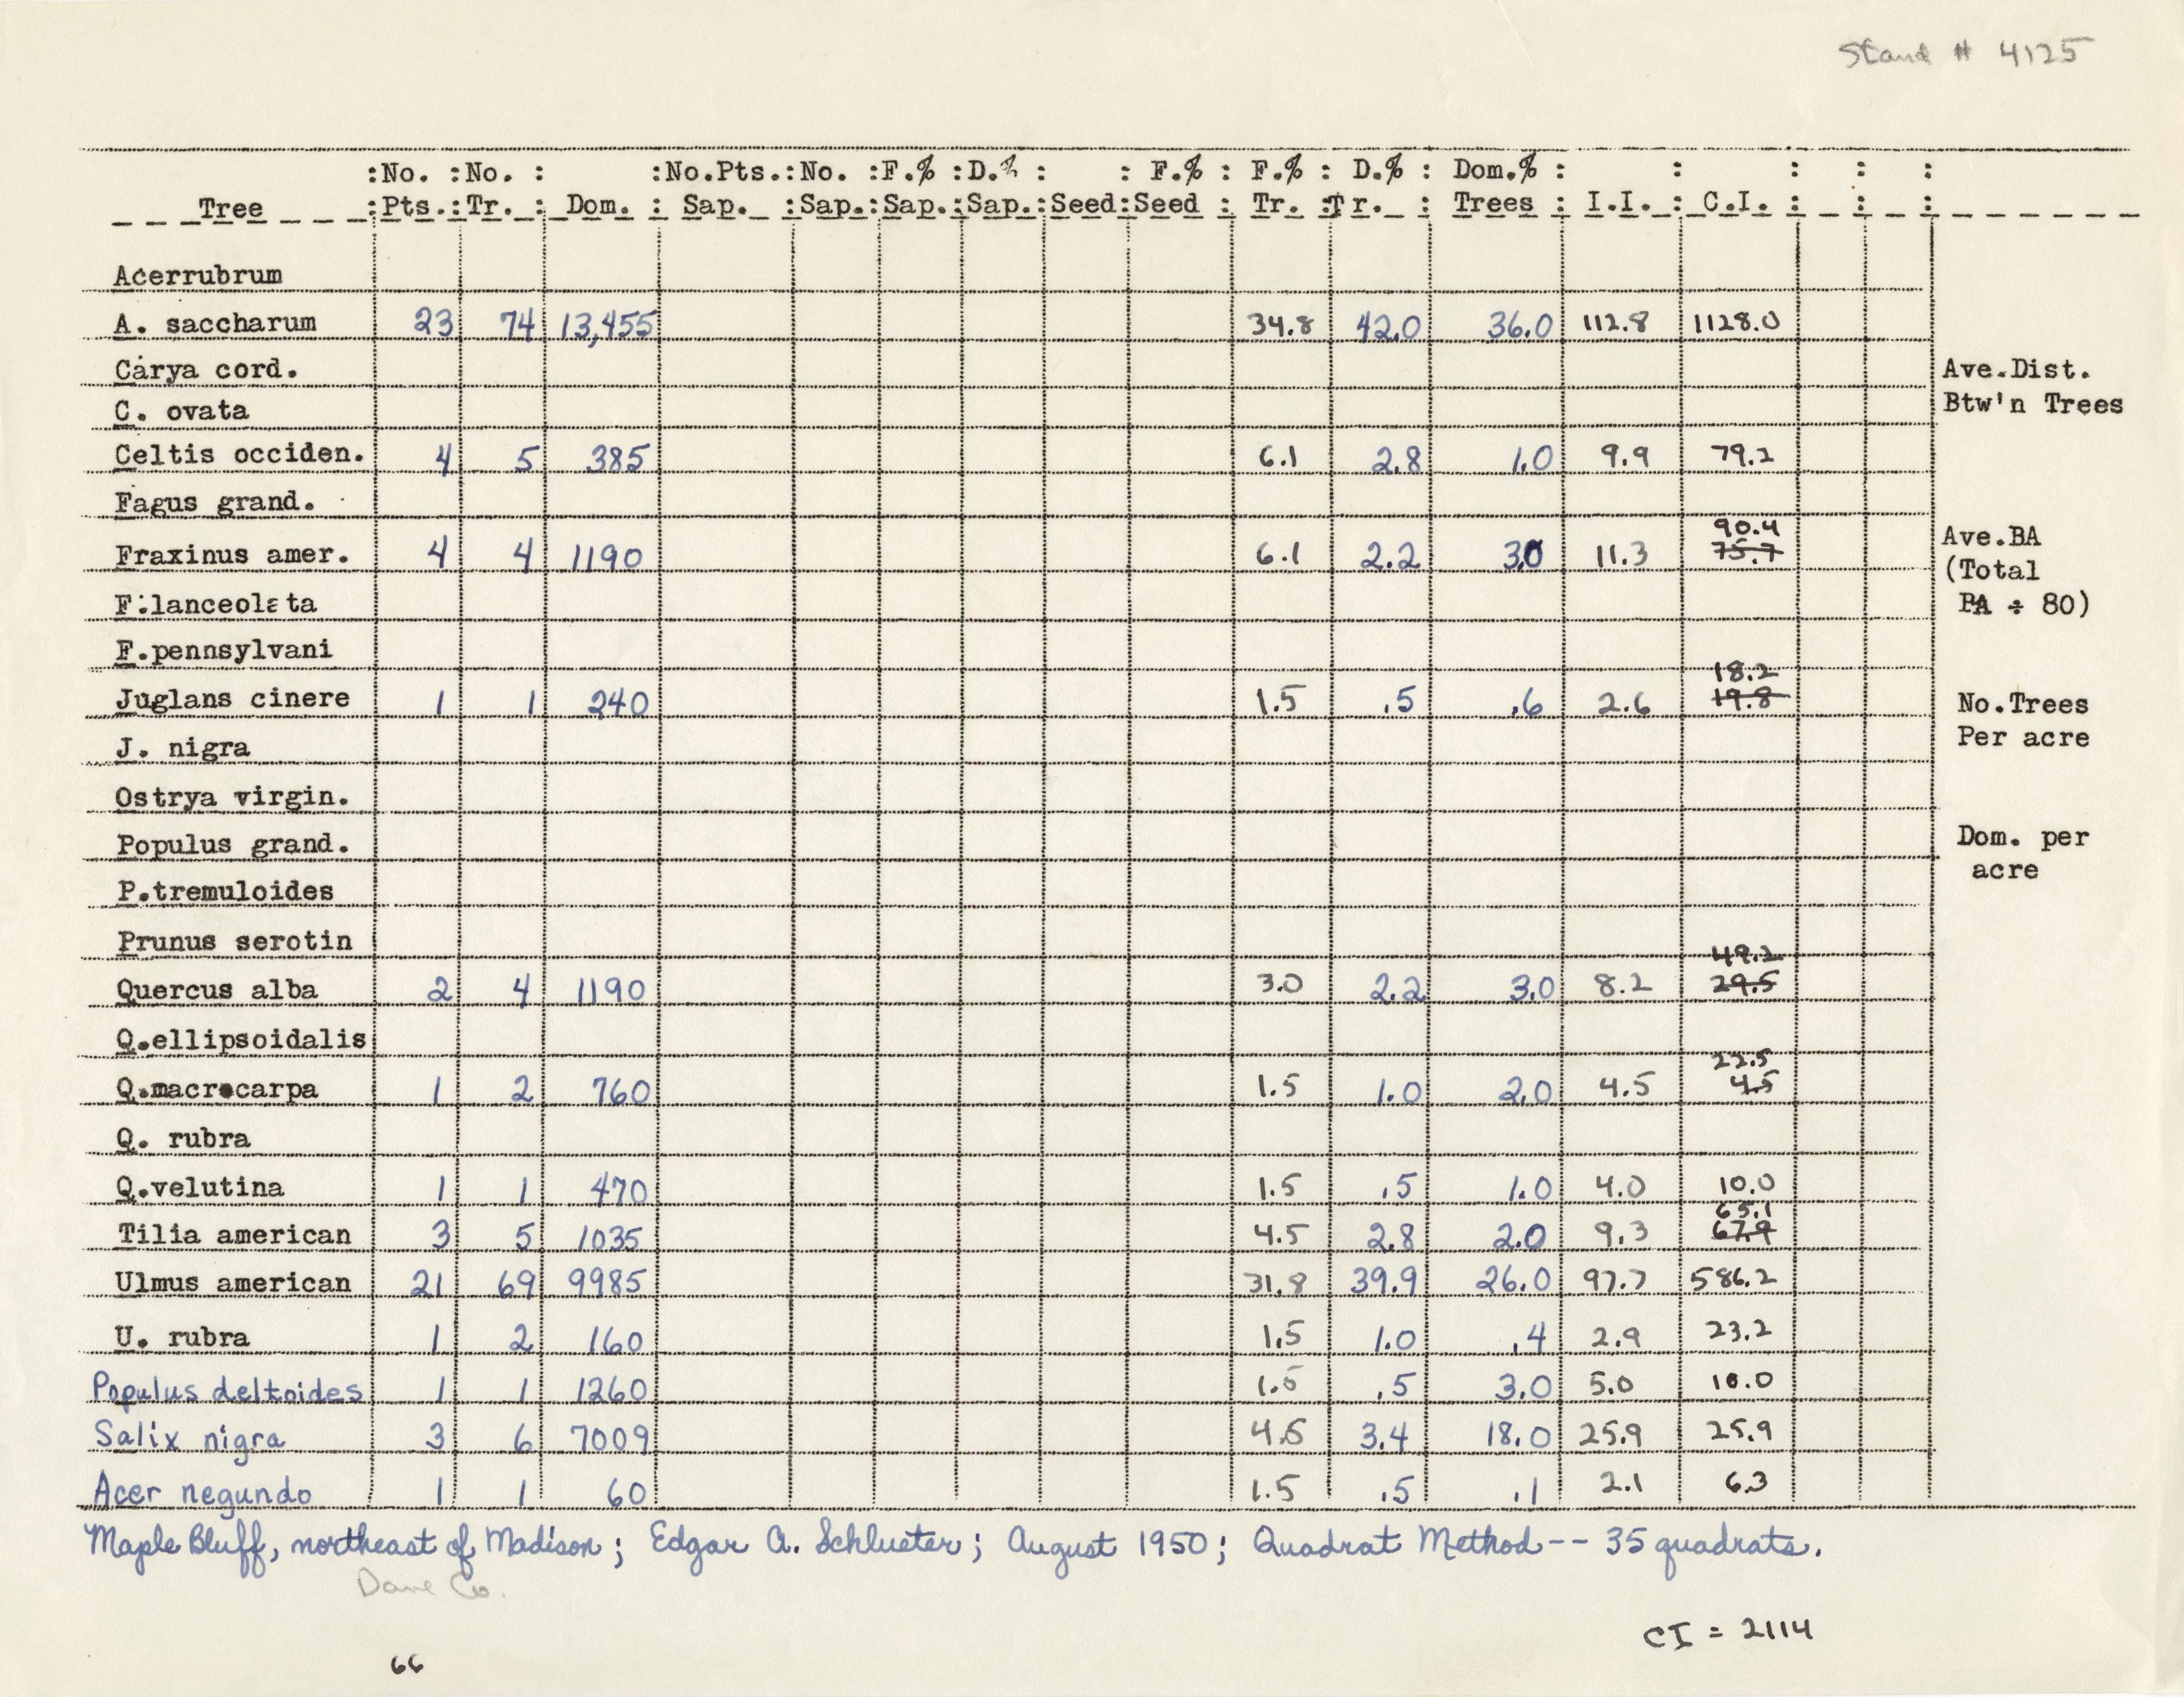 Stand # 4125
:No. :No. : :No.Pts.:No. :F.% :D.% : : F.% : F.% : D.% : Dom.% : : : : :
Tree :Pts.:Tr. : Dom. : Sap. :Sap.:Sap.:Sap.:Seed:Seed : Tr. :Tr. : Trees : I.I. : C.I. : : :
Acerrubrum
A. saccharum 23 74 13,455 34.8 42.0 36.0 112.8 1128.0
Carya cord.
Ave.Dist.
C. ovata
Btw'n Trees
Celtis occiden. 4 5 385 6.1 2.8 1.0 9.9 79.2
Fagus grand.
90.4
Fraxinus amer. 4 4 1190 6.1 2.2 3.0 11.3 75.7
Ave.BA
(Total
BA ÷ 80)
F.lanceolata
F.pennsylvani
18.2
Juglans cinere 1 1 240 1.5 .5 .6 2.6 19.8
No.Trees
Per acre
J. nigra
Ostrya virgin.
Populus grand.
Dom. per
acre
P.tremuloides
Prunus serotin
49.2
Quercus alba 2 4 1190 3.0 2.2 3.0 8.2 29.5
Q.ellipsoidalis
22.5
Q.macrocarpa 1 2 760 1.5 1.0 2.0 4.5 4.5
Q. rubra
Q.velutina 1 1 470 1.5 .5 1.0 4.0 10.0
65.1
Tilia american 3 5 1035 4.5 2.8 2.0 9.3 67.9
Ulmus american 21 69 9985 31.8 39.9 26.0 97.7 586.2
U. rubra 1 2 160 1.5 1.0 .4 2.9 23.2
Populus deltoides 1 1 1260 1.5 .5 3.0 5.0 10.0
Salix nigra 3 6 7009 4.5 3.4 18.0 25.9 25.9
Acer negundo 1 1 60 1.5 .5 .1 2.1 6.3
Maple Bluff, northeast of Madison; Edgar A. Schlueter; August 1950; Quadrat Method-- 35 quadrats.
Dane Co.
CI = 2114
66